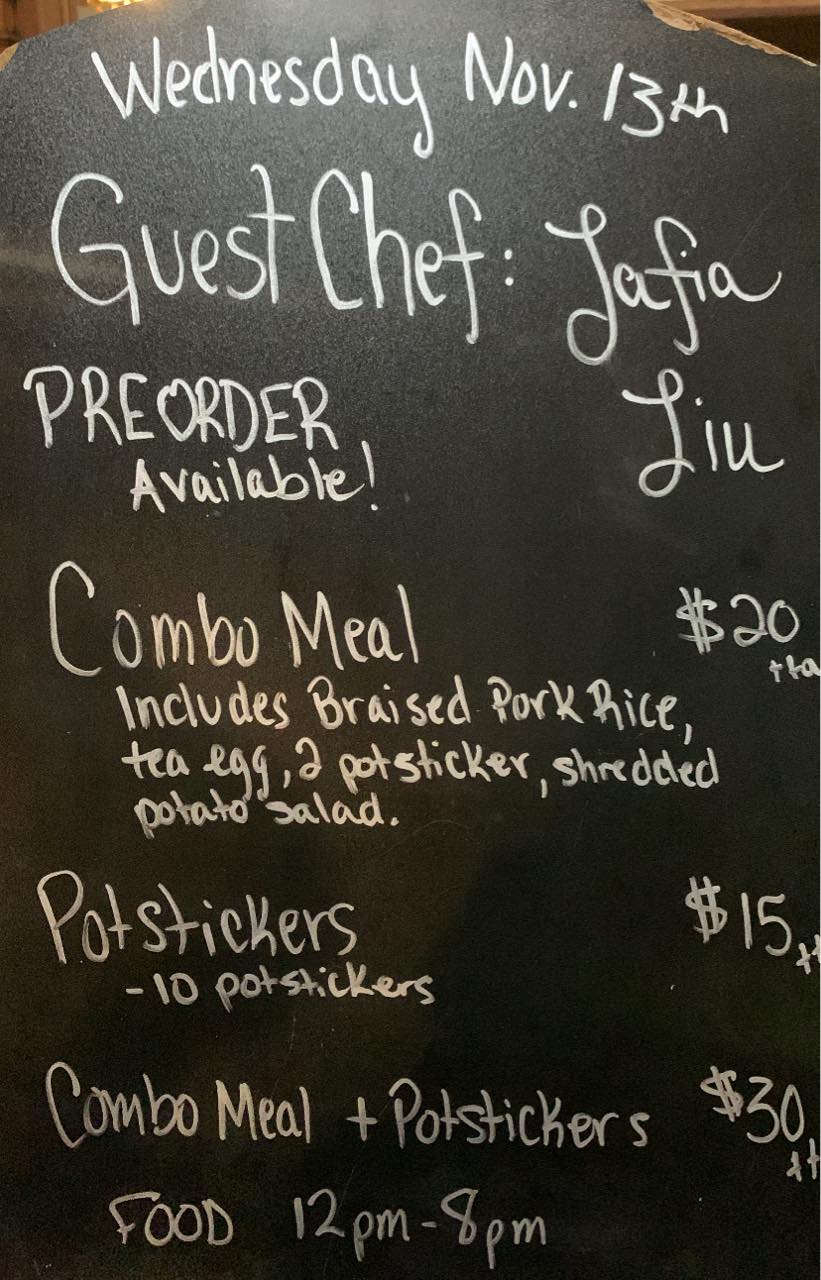 Wednesday Nov. 13th
Guest Chef: Jafia
Liu
PREORDER
Available!
Combo Meal $20
+ta
Includes Braised Pork Rice,
tea egg, 2 potsticker, shredded
potato salad.
Potstickers $15
+t
-10 potstickers
Combo Meal + Potstickers $30
+t
FOOD 12pm-8pm